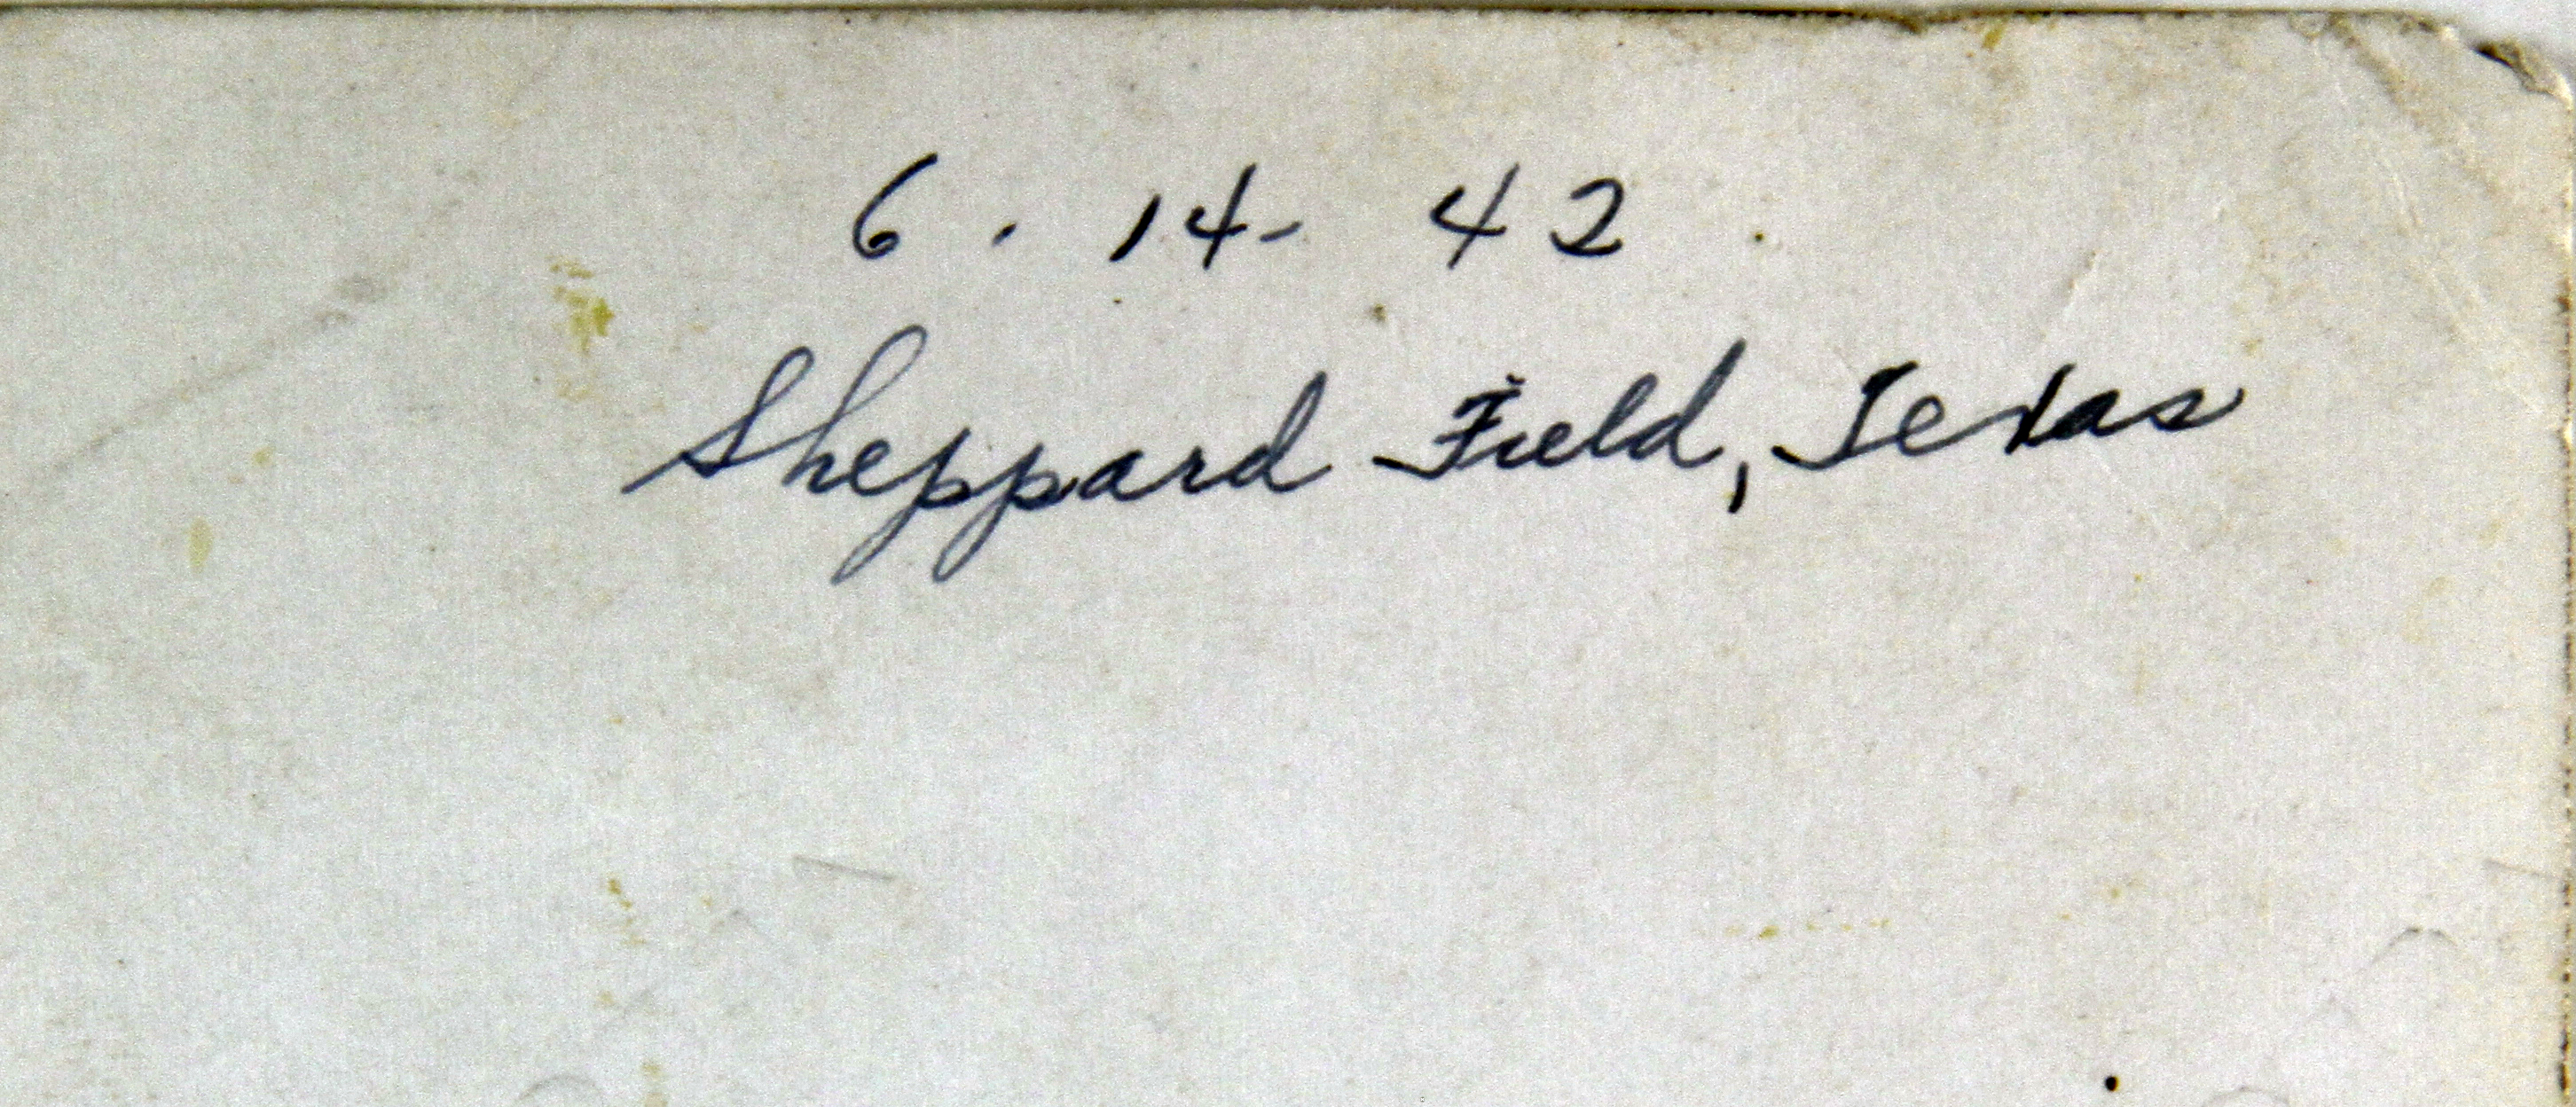 6 . 14 - 42 .
Sheppard Field, Texas